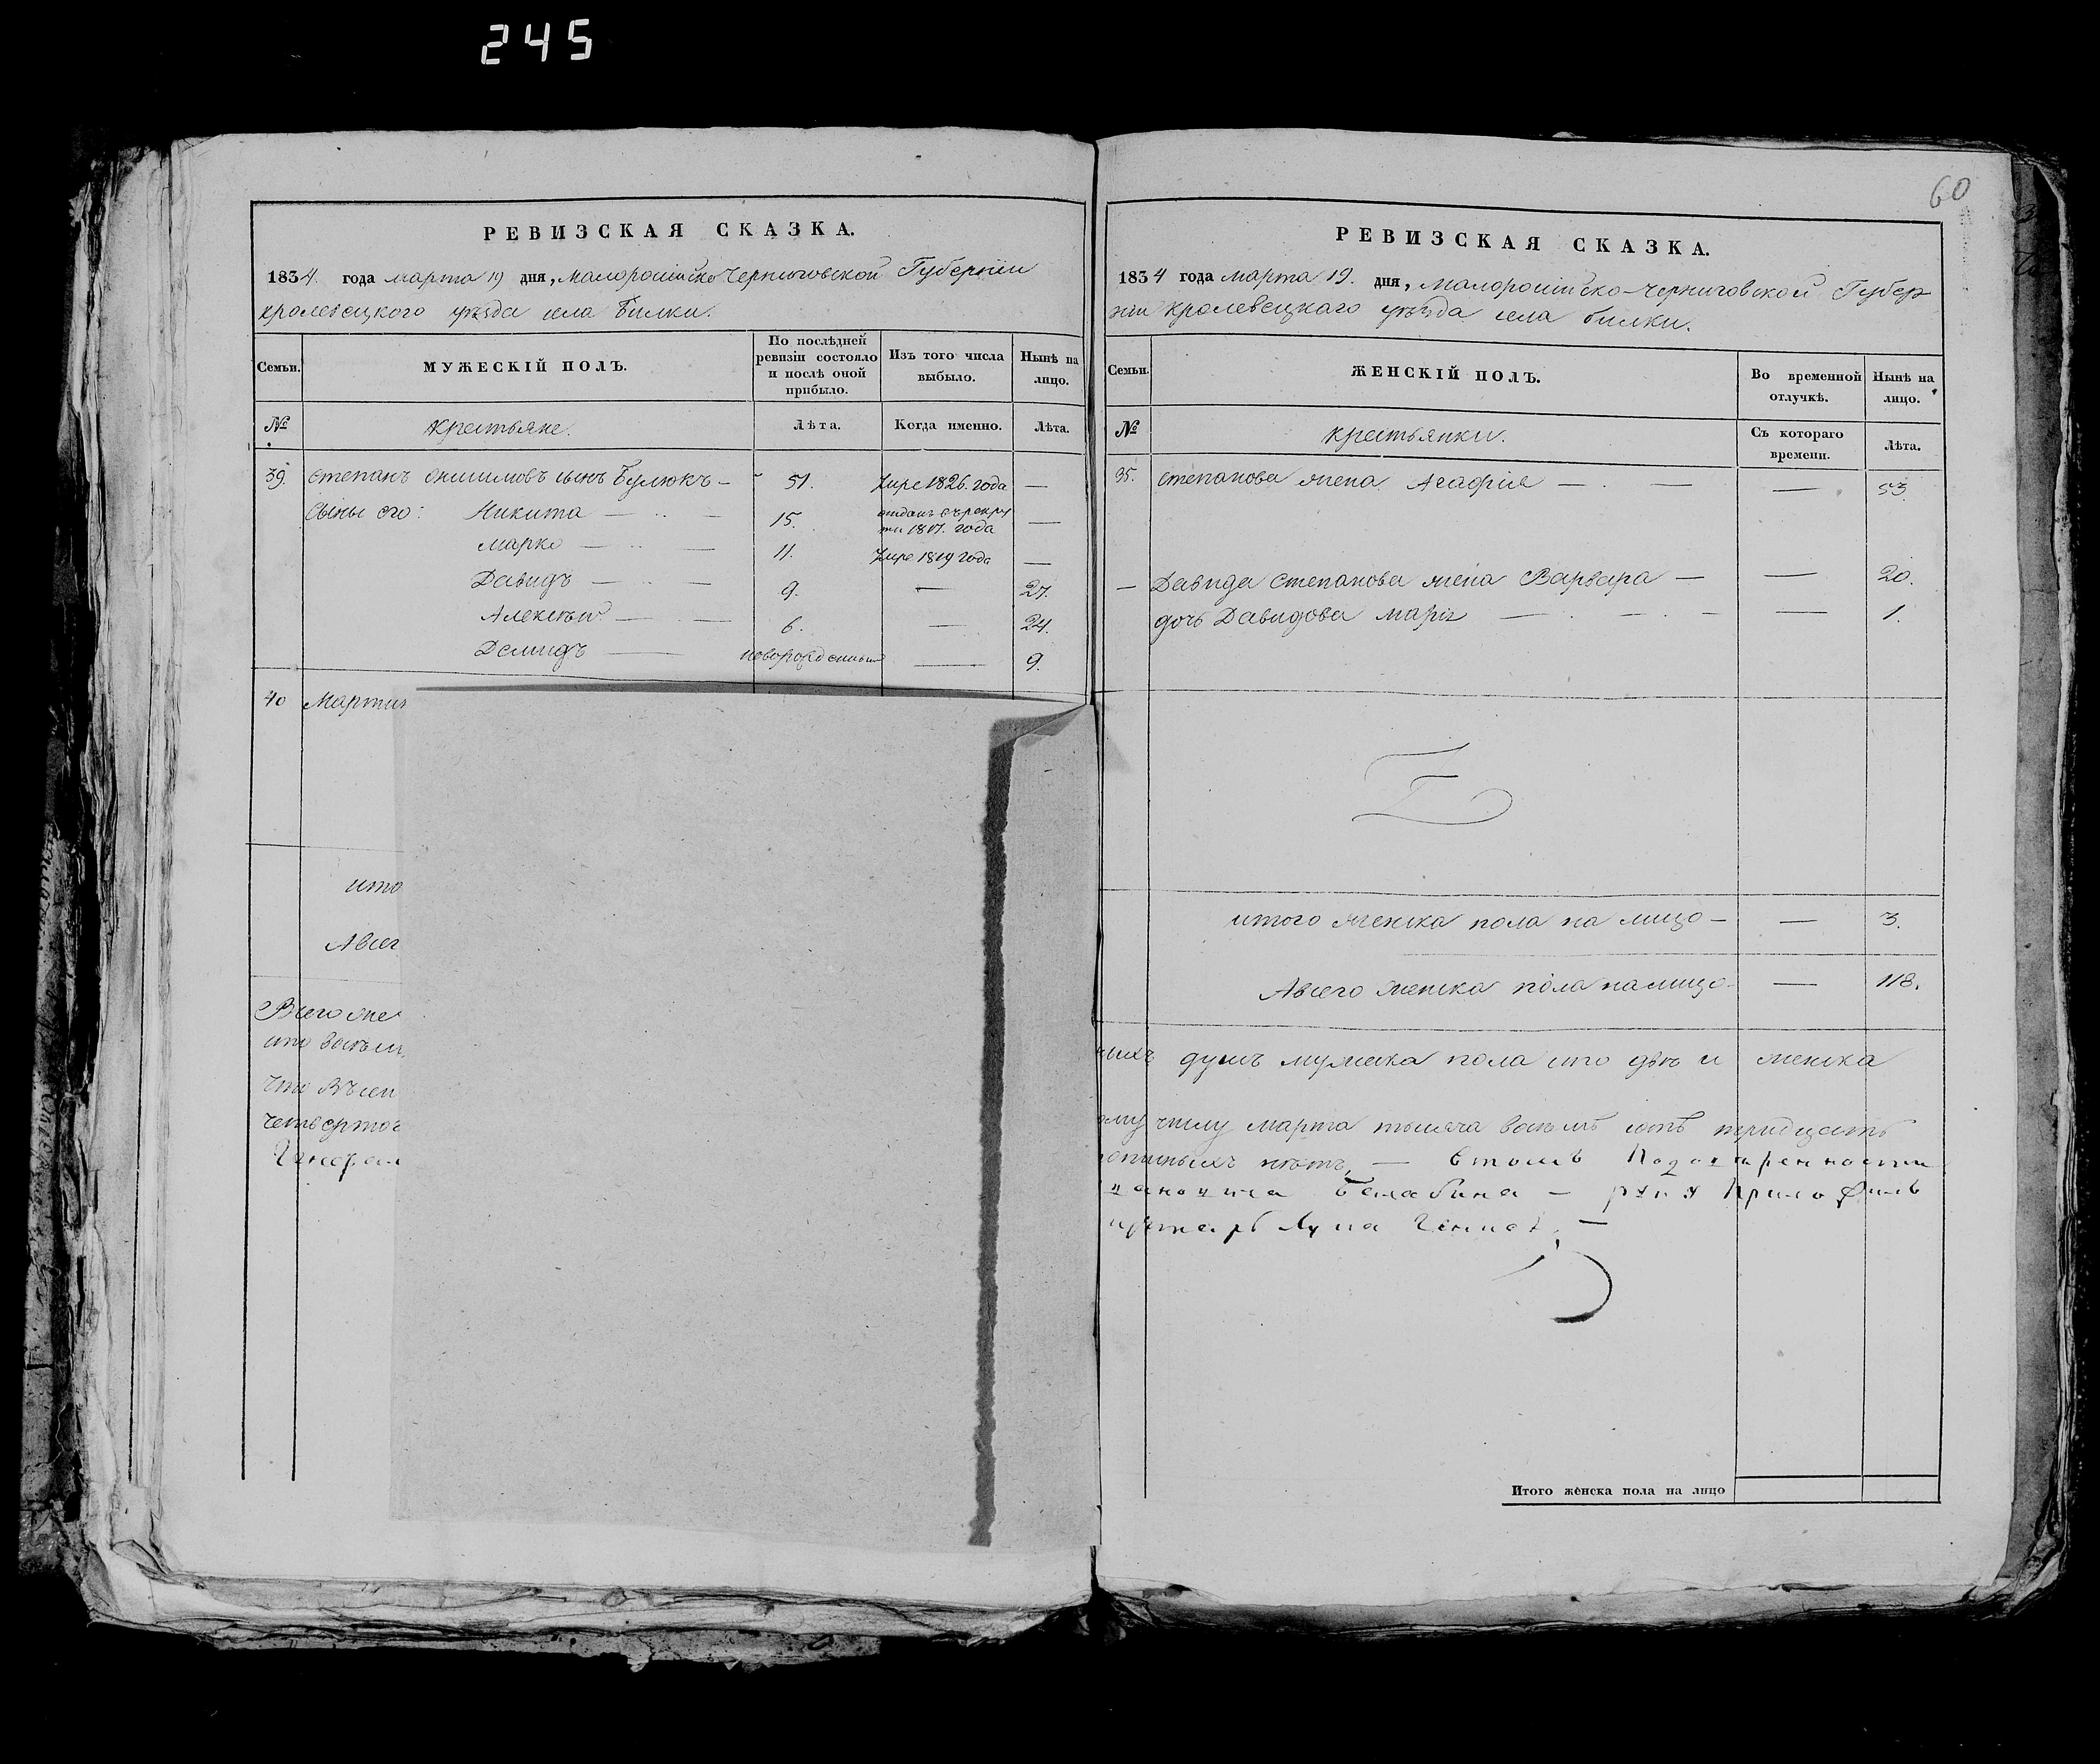 245
РЕВИЗСКАЯ СКАЗКА.
1834. года марта 19 дня, малоросійско Черниговской Губерніи
кролевецкого уѣзда села Билки.
Семьи.
МУЖЕСКІЙ ПОЛЪ.
По послѣдней ревизіи состояло и послѣ оной прибыло.
Изъ того числа выбыло.
Нынѣ на лицо.
№
Крестьяне.
Лѣта.
Когда именно.
Лѣта.
39. степанъ онисимовъ сынъ Булюкъ — 51. Умре 1826. года —
Сыны его: Никита — 15. отданъ в рекру
ти 1817. года —
марко — 11. Умре 1819 года —
Давидъ — 9. — 27.
Алексѣй — 6. — 24.
Демидъ — новорожденный — 9.
40 Мартин
ито
Авсег
Всего же
сто восѣм
Что Въ сей
четвертог
60
РЕВИЗСКАЯ СКАЗКА.
1834 года марта 19. дня, малоросійско-черниговской Губер
ніи кролевецкаго уѣзда села билки.
Семьи.
ЖЕНСКІЙ ПОЛЪ.
Во временной отлучкѣ.
Нынѣ на лицо.
№
крестьянки.
Съ котораго времени.
Лѣта.
35. степанова жена Агафія — — 53.
— Давида степанова жена Варвара — — 20.
дочь Давидова марія — — 1.
итого женска пола на лицо — — 3.
Авсего женска пола налицо — — 118.
ныхъ душъ мужеска пола сто двѣ и женска
ому числу марта тысяча восѣмъ сотъ тридцать
нѣтъ, — в томъ
Балабина — руку приложилъ
Итого женска пола на лицо